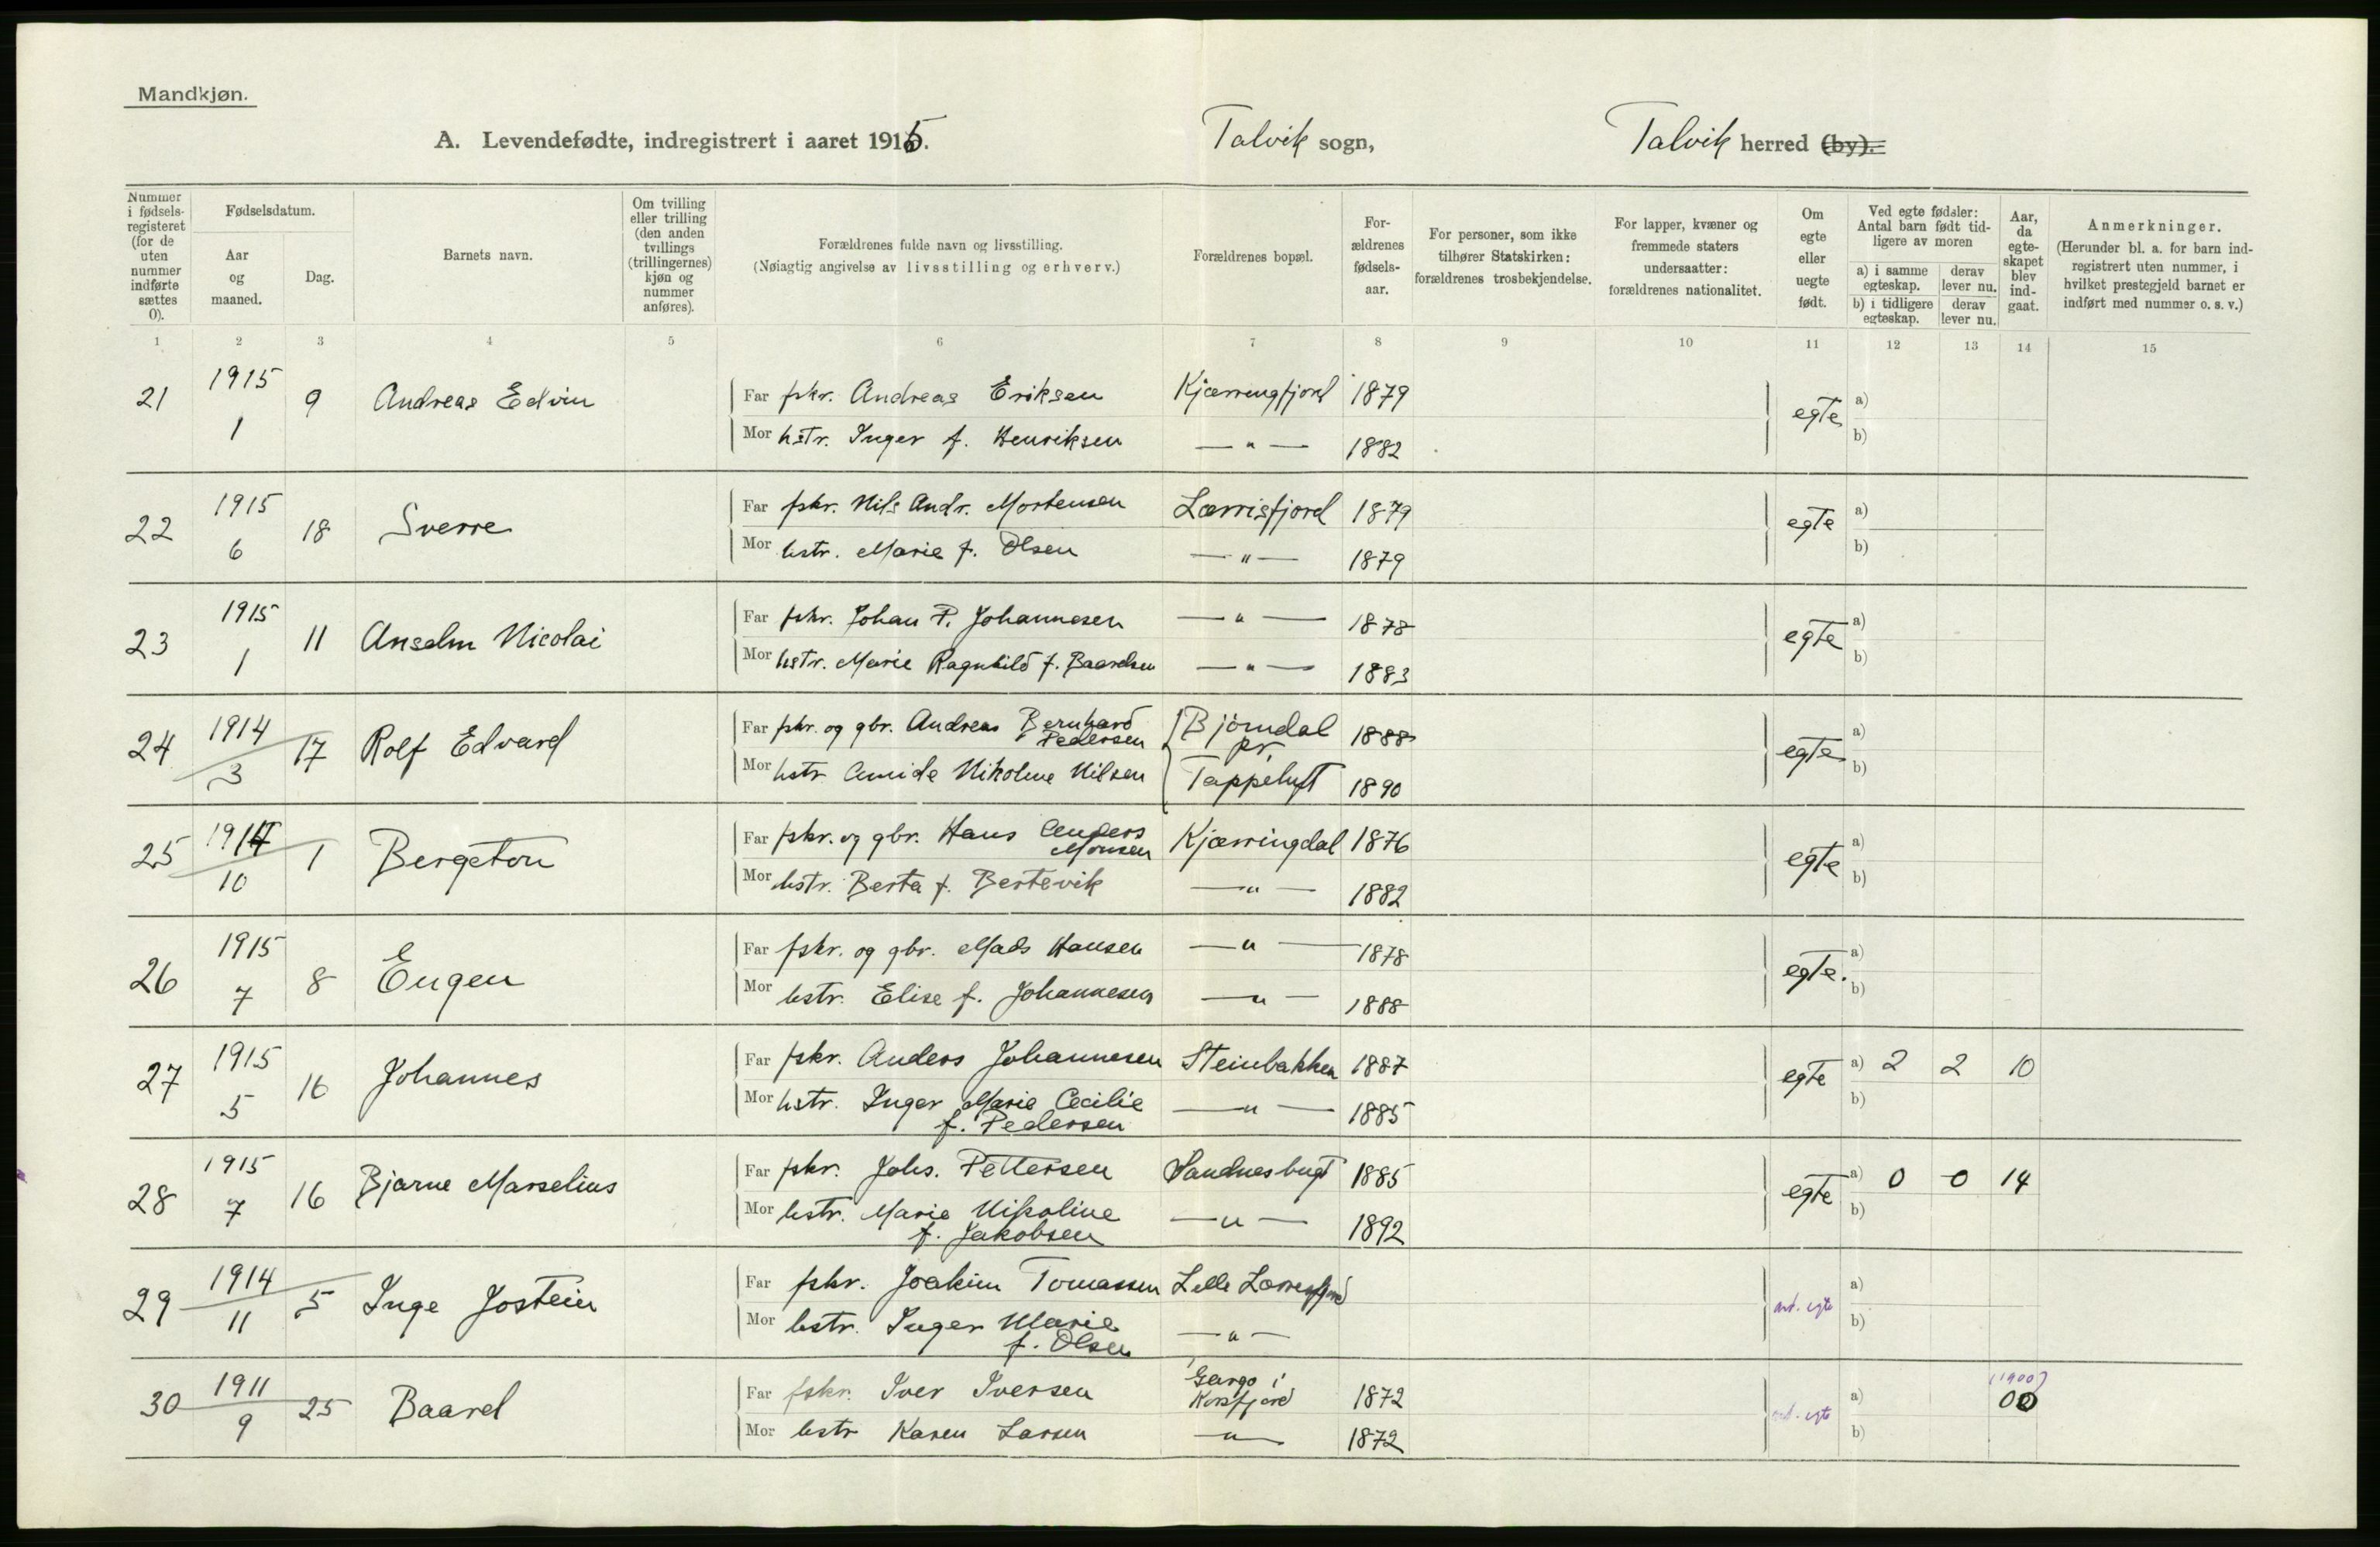 Mandkjøn.
A. Levendefødte, indregistrert i aaret 1915. Talvik sogn, Talvik herred (by).
Nummer i fødselsregisteret (for de uten nummer indførte sættes 0).
Fødselsdatum.
Aar og maaned.
Dag.
Barnets navn.
Om tvilling eller trilling (den anden tvillings (trillingernes) kjøn og nummer anføres).
Forældrenes fulde navn og livsstilling.
(Nøiagtig angivelse av livsstilling og erhverv.)
Forældrenes bopæl.
Forældrenes fødselsaar.
For personer, som ikke tilhører Statskirken: forældrenes trosbekjendelse.
For lapper, kvæner og fremmede staters undersaatter: forældrenes nationalitet.
Om egte eller uegte født.
Ved egte fødsler: Antal barn født tidligere av moren
a) i samme egteskap. derav lever nu.
b) i tidligere egteskap. derav lever nu.
Aar, da egteskapet blev indgaat.
Anmerkninger.
(Herunder bl. a. for barn indregistrert uten nummer, i hvilket prestegjeld barnet er indført med nummer o. s. v.)
1 2 3 4 5 6 7 8 9 10 11 12 13 14 15
21 1915 1 9 Andreas Edvin Far fskr. Andreas Eriksen Kjærrengfjord 1879 egte a)
Mor hstr. Inger f. Henriksen — " — 1882 b)
22 1915 6 18 Sverre Far fskr. Nils Andr. Mortensen Lærrisfjord 1879 egte a)
Mor hstr. Marie f. Olsen — " — 1879 b)
23 1915 1 11 Anselm Nicolai Far fskr. Johan P. Johannesen — " — 1878 egte a)
Mor hstr. Marie Ragnhild f. Baardsen — " — 1883 b)
24 1914 3 17 Rolf Edvard Far fskr. og gbr. Andreas Bernhard Pedersen Bjørndal pr. 1888 egte a)
Mor hstr. Amide Nikoline Nilsen Tappeluft 1890 b)
25 1914 10 1 Bergeton Far fskr. og gbr. Hans Anders Monsen Kjærringdal 1876 egte a)
Mor hstr. Berta f. Bertevik — " — 1882 b)
26 1915 7 8 Eugen Far fskr. og gbr. Mads Hansen — " — 1878 egte. a)
Mor hstr. Elise f. Johannesen — " — 1888 b)
27 1915 5 16 Johannes Far fskr. Anders Johannesen Steinbakken 1887 egte a) 2 2 10
Mor hstr. Inger Marie Cecilie — " — 1885 b)
f. Pedersen
28 1915 7 16 Bjarne Marselius Far fskr. Johs. Pettersen Sandnesbugt 1885 egte a) 0 0 14
Mor hstr. Marie Nikoline — " — 1892 b)
f. Jakobsen
29 1914 11 5 Inge Jostein Far fskr. Joakim Tomassen Lille Lærresfjord ant. egte a)
Mor hstr. Inger Marie — " — b)
f. Olsen
30 1911 9 25 Baard Far fskr. Iver Iversen Gargo i Korsfjord 1872 ant. egte a) (1900) 00
Mor hstr Karen Larsen — " — 1872 b)